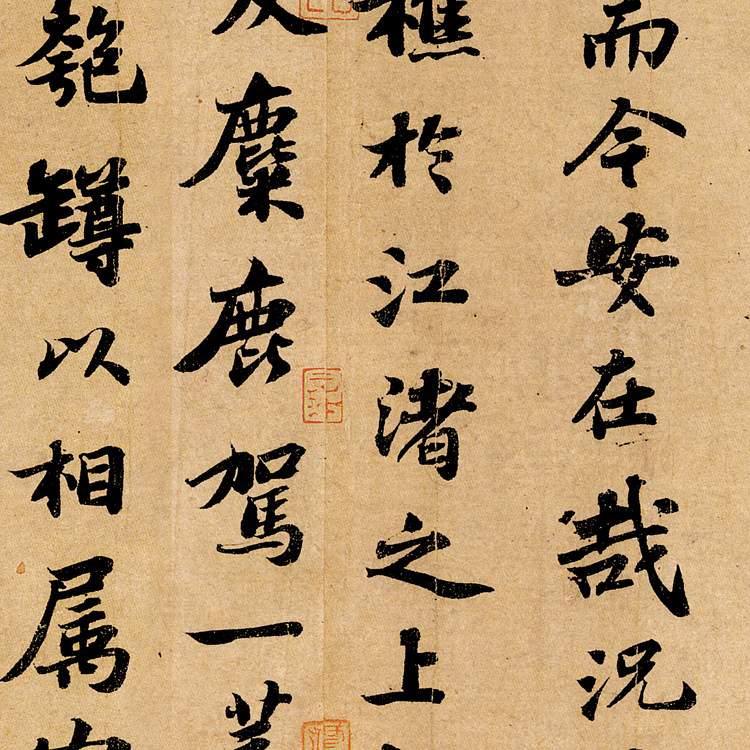 而今安在哉況
樵於江渚之上
友麋鹿駕一葉
匏罇以相属